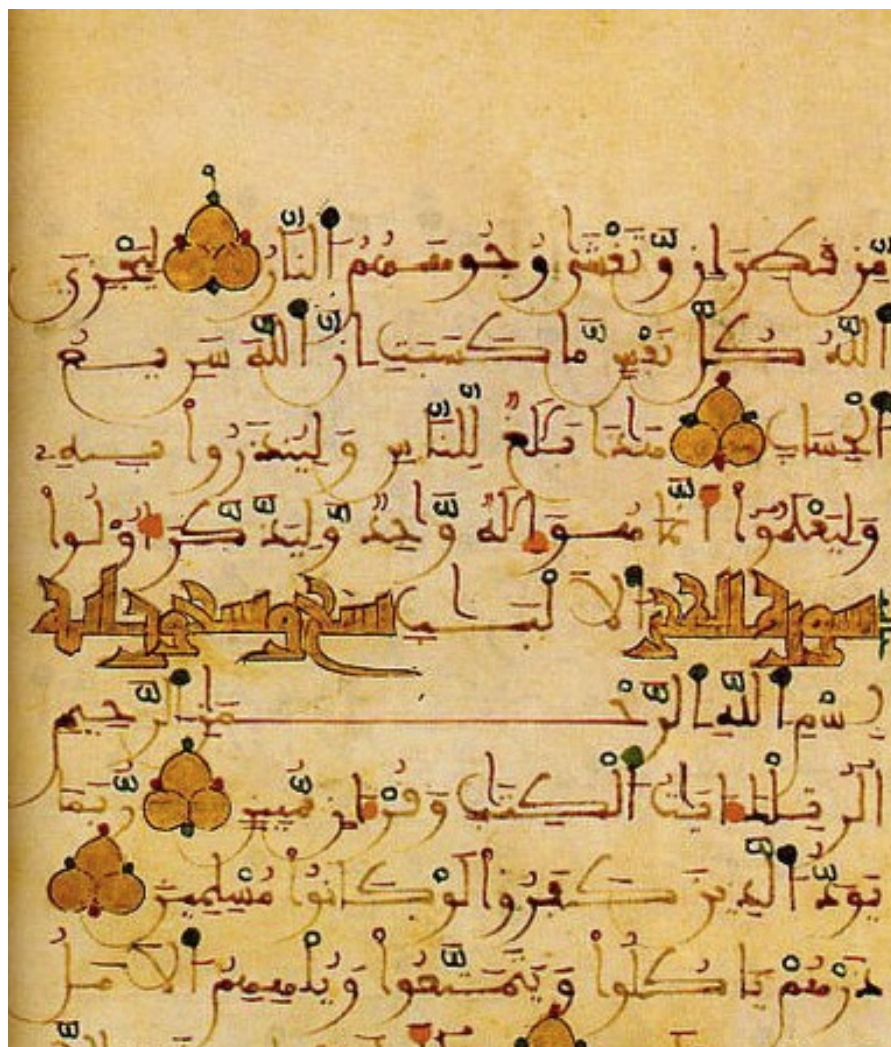 مِّن قَطِرَانٍ وَتَغْشَىٰ وُجُوهَهُمُ النَّارُ لِيَجْزِيَ
اللَّهُ كُلَّ نَفْسٍ مَّا كَسَبَتِ اِنَّ اللَّهَ سَرِيعُ
الْحِسَابِ هَٰذَا بَلَٰغٌ لِّلنَّاسِ وَلِيُنذَرُواْ بِهِۦ
وَلِيَعْلَمُوٓاْ أَنَّمَا هُوَ إِلَٰهٌ وَٰحِدٌ وَلِيَذَّكَّرَ أُوْلُواْ
سورة الحجر الَالْبَٰبِ تسع وتسعون اية
بِسْمِ اللَّهِ الرَّحْمَٰنِ الرَّحِيمِ
الَٓرَ تِلْكَ ءَايَٰتُ الْكِتَٰبِ وَقُرْءَانٍ مُّبِينٍ رُّبَمَا
يَوَدُّ الَّذِينَ كَفَرُواْ لَوْ كَانُواْ مُسْلِمِينَ
ذَرْهُمْ يَاكُلُواْ وَيَتَمَتَّعُواْ وَيُلْهِهِمُ الَامَلُ